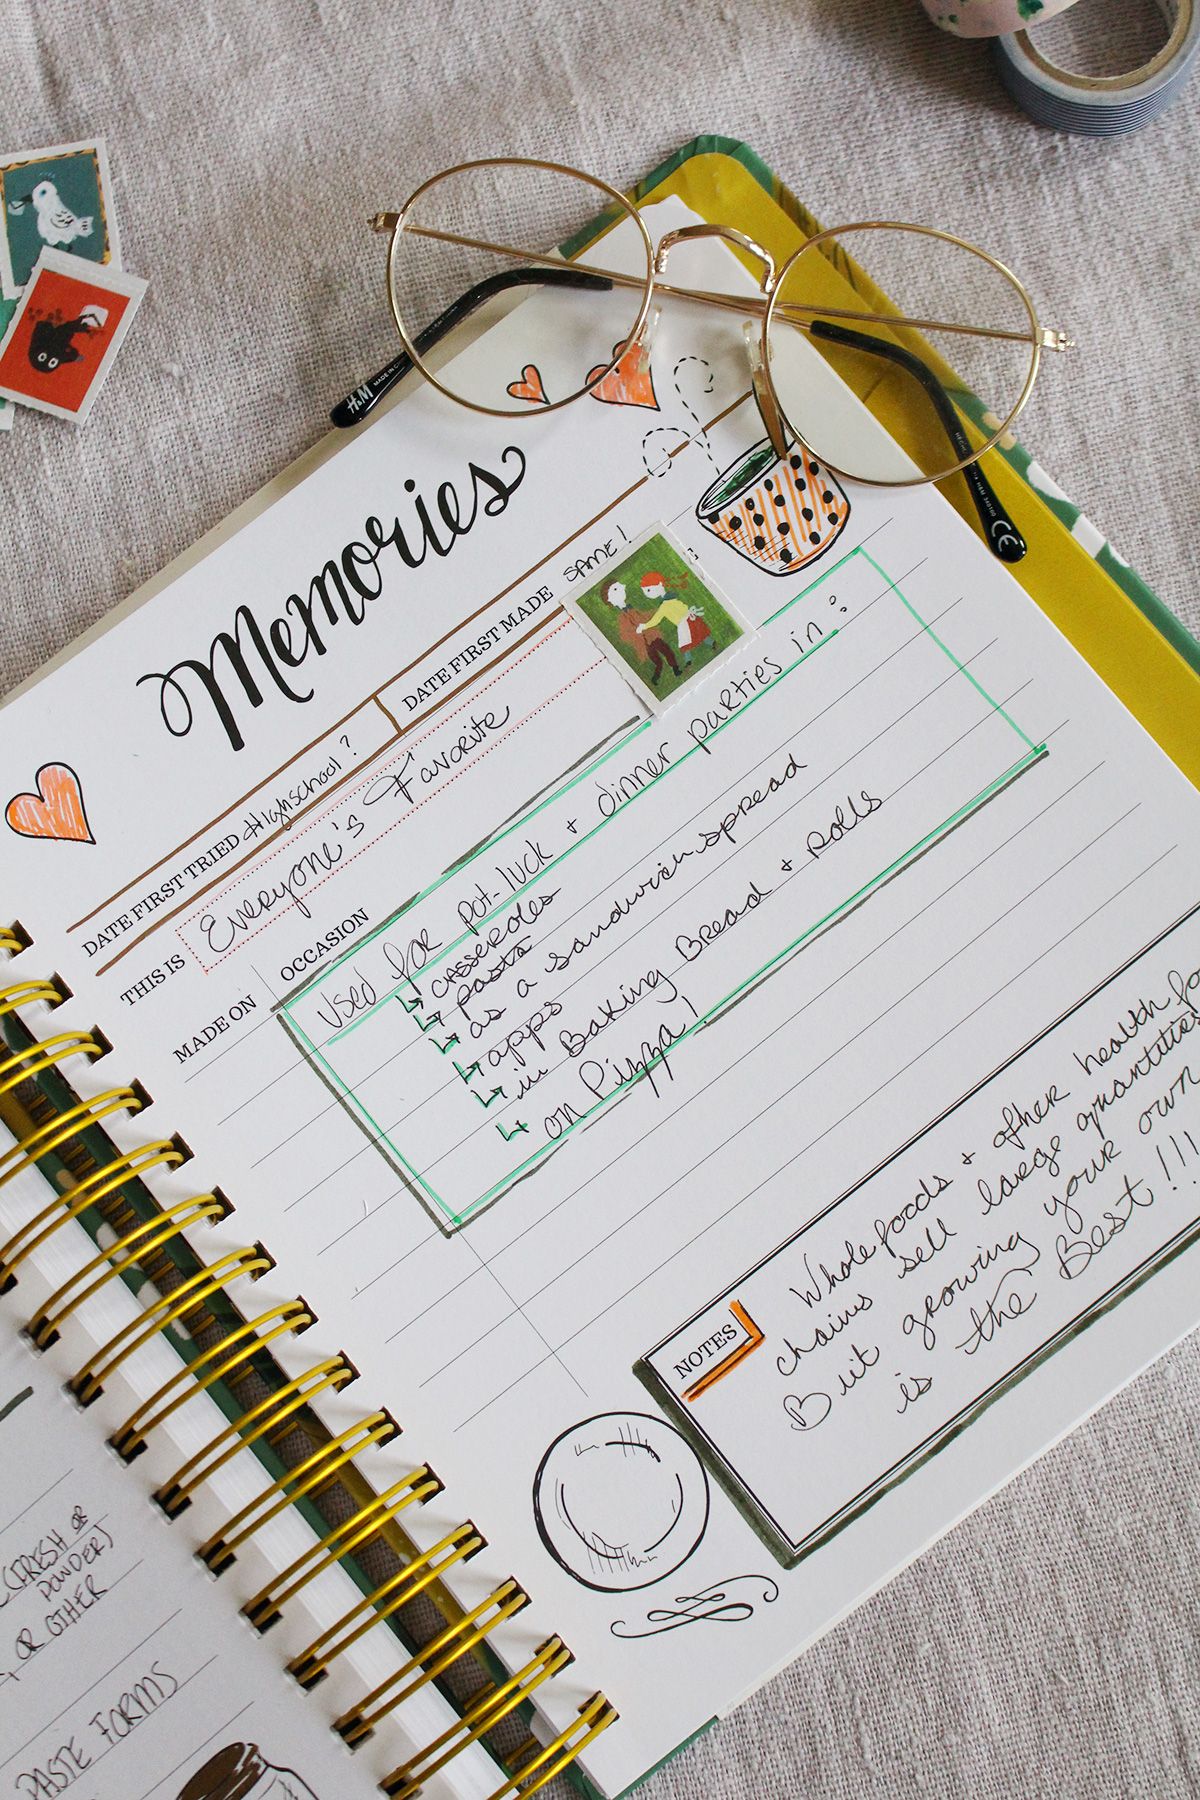 H&M
MADE IN C
CE
Memories
DATE FIRST TRIED Highschool?
DATE FIRST MADE SAME!
THIS IS Everyone's Favorite
MADE ON
OCCASION
Used for pot-luck + dinner parties in:
↳ casseroles
↳ pasta
↳ as a sandwich spread
↳ apps
↳ in Baking Bread + Rolls
↳ on Pizza!
NOTES
Whole foods + other health fo
chains sell large quantities
But growing your own
is the Best!!!
(FRESH OR
POWDER)
, OR OTHER
PASTE FORMS